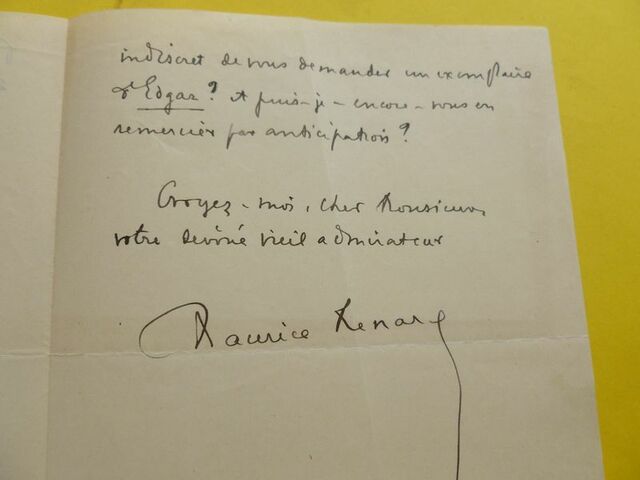 indiscret de vous demander un exemplaire
d'Edgar ? et puis-je - encore - vous en
remercier par anticipation ?
Croyez-moi, cher Monsieur,
votre dévoué vieil admirateur
Maurice Renard